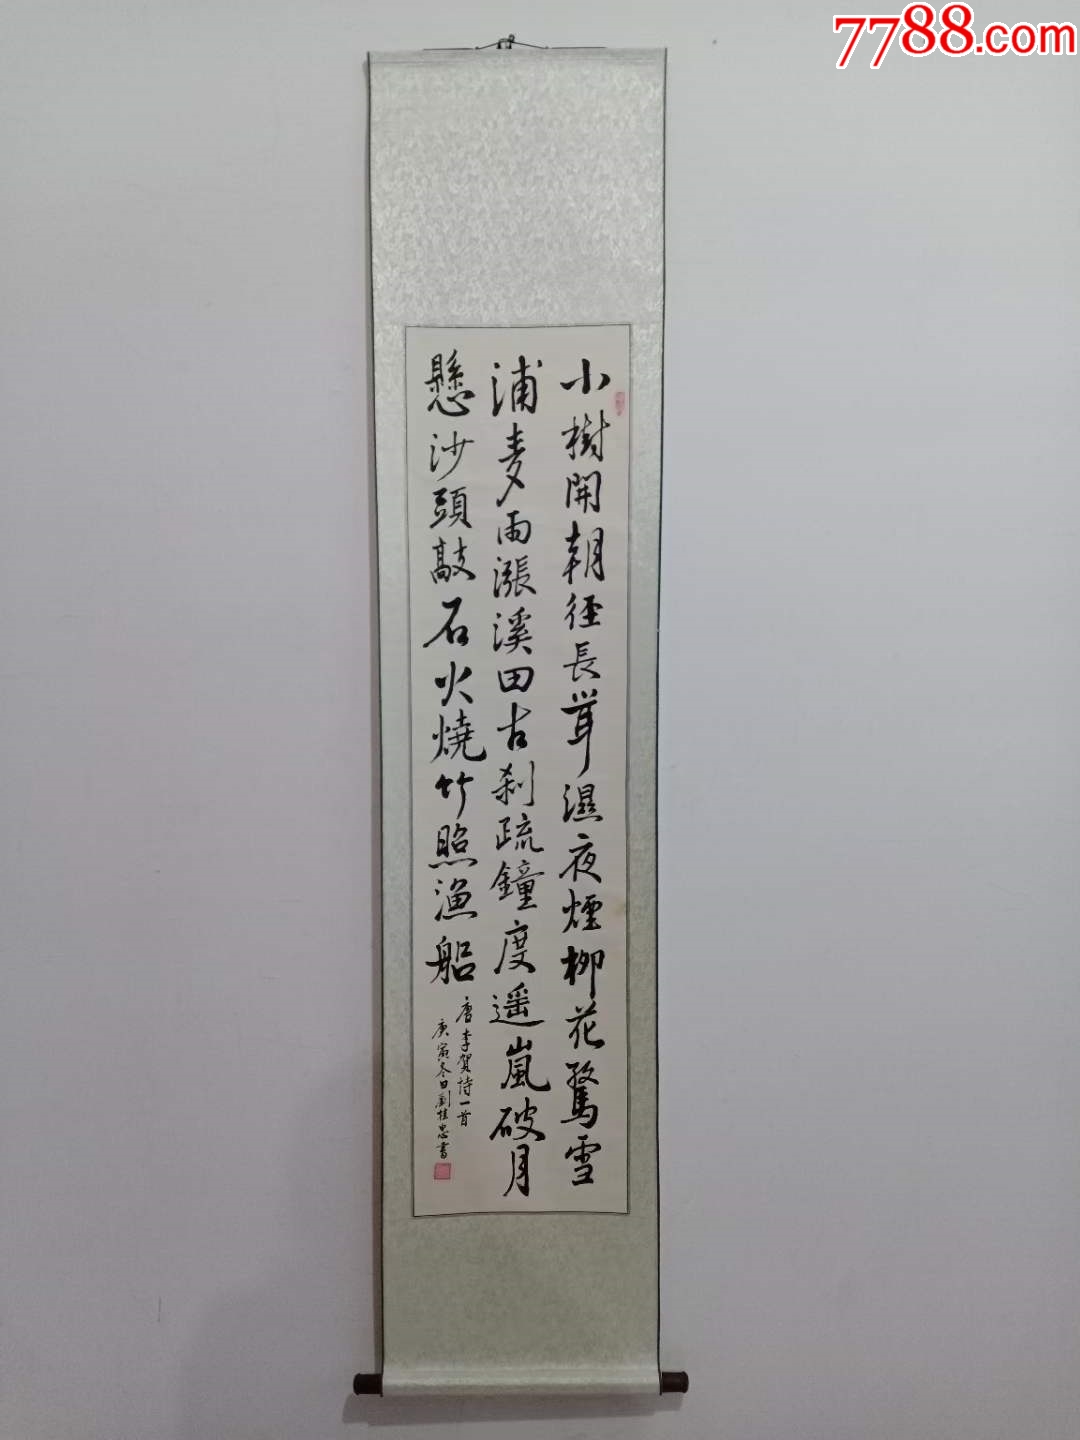 7788.com
小樹開朝徑長茸濕夜煙柳花驚雪
浦麦雨漲溪田古刹疏鐘度遥嵐破月
懸沙頭敲石火燒竹照漁船
唐李賀詩一首
庚寅冬日劉桂忠書